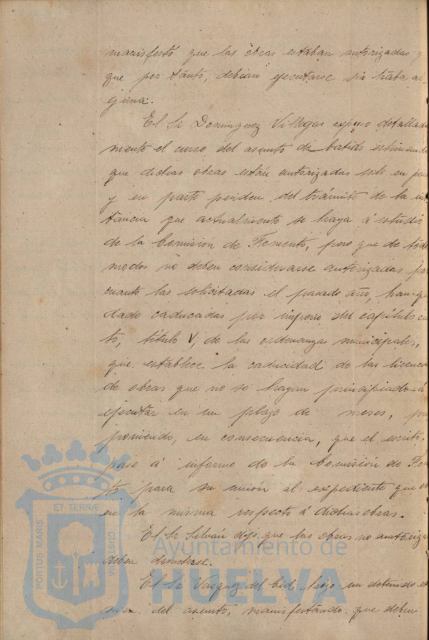 manifestó que las obras estaban autorizadas y
que por tanto, debían ejecutarse sin traba al
guna.
El Sr Dominguez Villegas expuso detallada
mente el curso del asunto debatido estimando
que dichas obras están autorizadas solo en parte
y en parte penden del trámite de la ins
tancia que actualmente se haya á estudio
de la Comision de Fomento, pero que de todos
modos no deben considerarse autorizadas por
cuanto las solicitadas el pasado año, han que
dado caducadas por imperio del capítulo
to, título V, de las ordenanzas municipales,
que establece la caducidad de las licencias
de obras que no se hayan principiado á
ejecutar en un plazo de meses, pro
poniendo, en consecuencia, que el escrito
pase á informe de la Comision de Fomen
to para su unión al expediente que
en la misma respecto á dichas obras.
El Sr Silván dijo que las obras no autorizadas
deben
El Sr Vazquez del Cid, hizo un detenido
del asunto, manifestando que deben
PORTUS MARIS ET TERRAE CUSTODIA
Ayuntamiento de
HUELVA